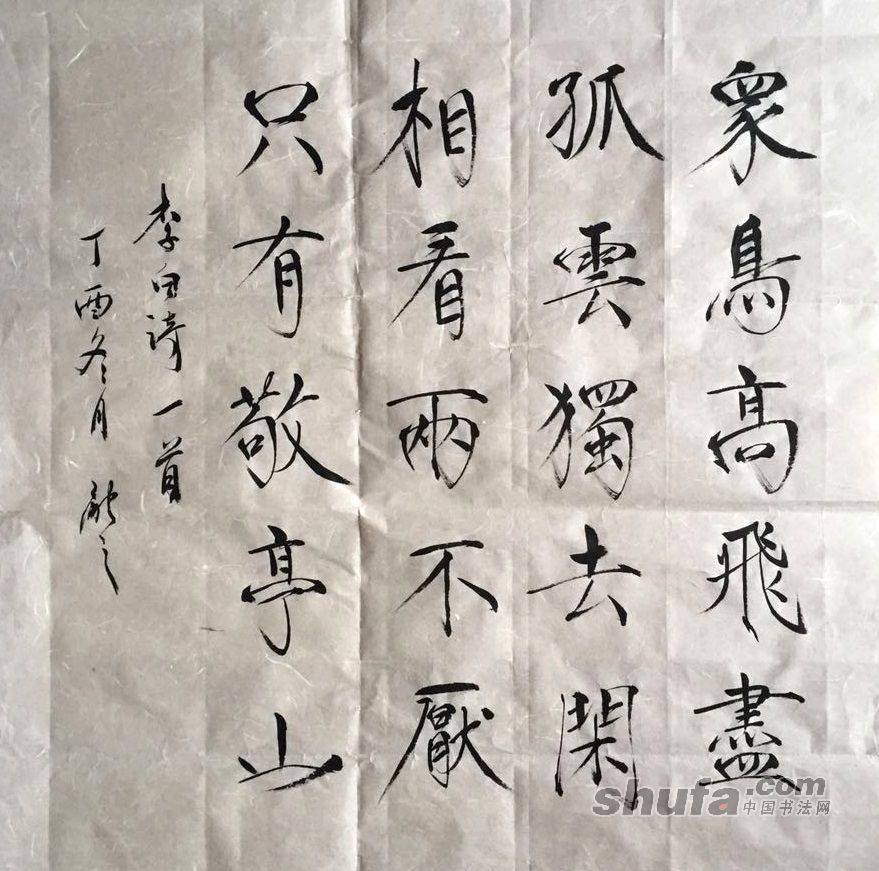 眾鳥高飛盡
孤雲獨去閑
相看兩不厭
只有敬亭山
李白詩一首
丁酉冬月
shufa.com
中国书法网